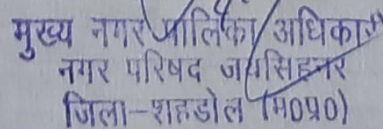 मुख्य नगर पालिका अधिकारी
नगर परिषद जयसिंहनगर
जिला-शहडोल (म०प्र०)